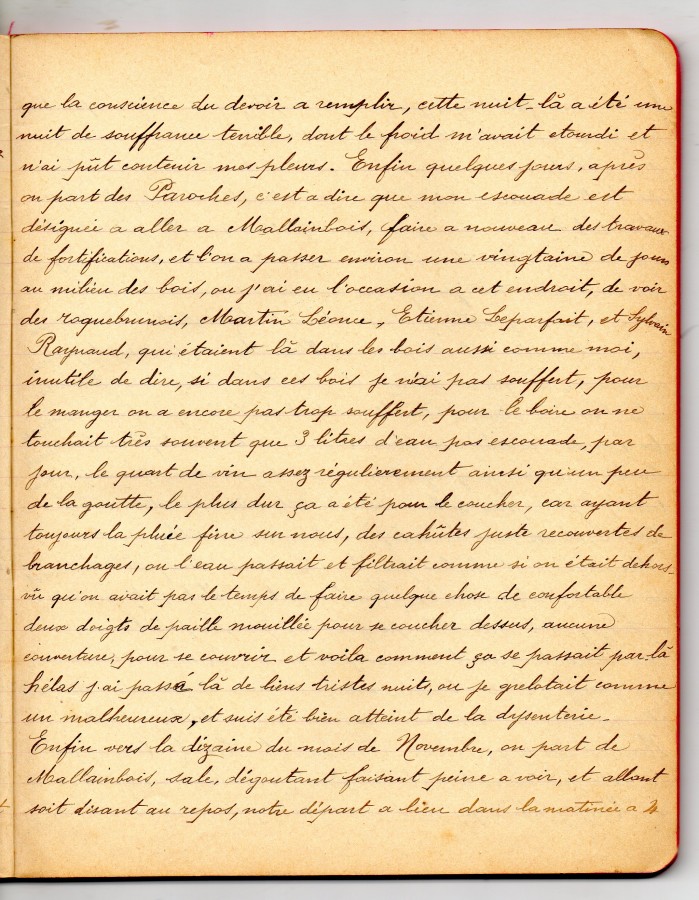 que la conscience du devoir a remplir, cette nuit-là a été une
nuit de souffrance terrible, dont le froid m'avait etourdi et
n'ai pût contenir mes pleurs. Enfin quelques jours, après
on part des Paroches, c'est a dire que mon escouade est
désignée a aller a Mallainbois, faire a nouveau des travaux
de fortifications, et l'on a passer environ une vingtaine de jours
au milieu des bois, ou j'ai eu l'occasion a cet endroit, de voir
des roquebrunois, Martin Léonce, Etienne Leparfait, et Sylvain
Raynaud, qui étaient là dans les bois aussi comme moi,
inutile de dire, si dans ces bois je n'ai pas souffert, pour
le manger on a encore pas trop souffert, pour le boire on ne
touchait très souvent que 3 litres d'eau pas escouade, par
jour, le quart de vin assez régulierement ainsi qu'un peu
de la goutte, le plus dur ça a été pour le coucher, car ayant
toujours la pluie fine sur nous, des cahûtes juste recouvertes de
branchages, ou l'eau passait et filtrait comme si on était dehors-
vû qu'on avait pas le temps de faire quelque chose de confortable
deux doigts de paille mouillée pour se coucher dessus, aucune
couverture, pour se couvrir et voila comment ça se passait par-là
hélas j'ai passé là de biens tristes nuits, ou je grelotait comme
un malheureux, et suis été bien atteint de la dysenterie-
Enfin vers la dizaine du mois de Novembre, on part de
Mallainbois, sale, dégoutant faisant peine a voir, et allant
soit disant au repos, notre départ a lieu dans la matinée a 4